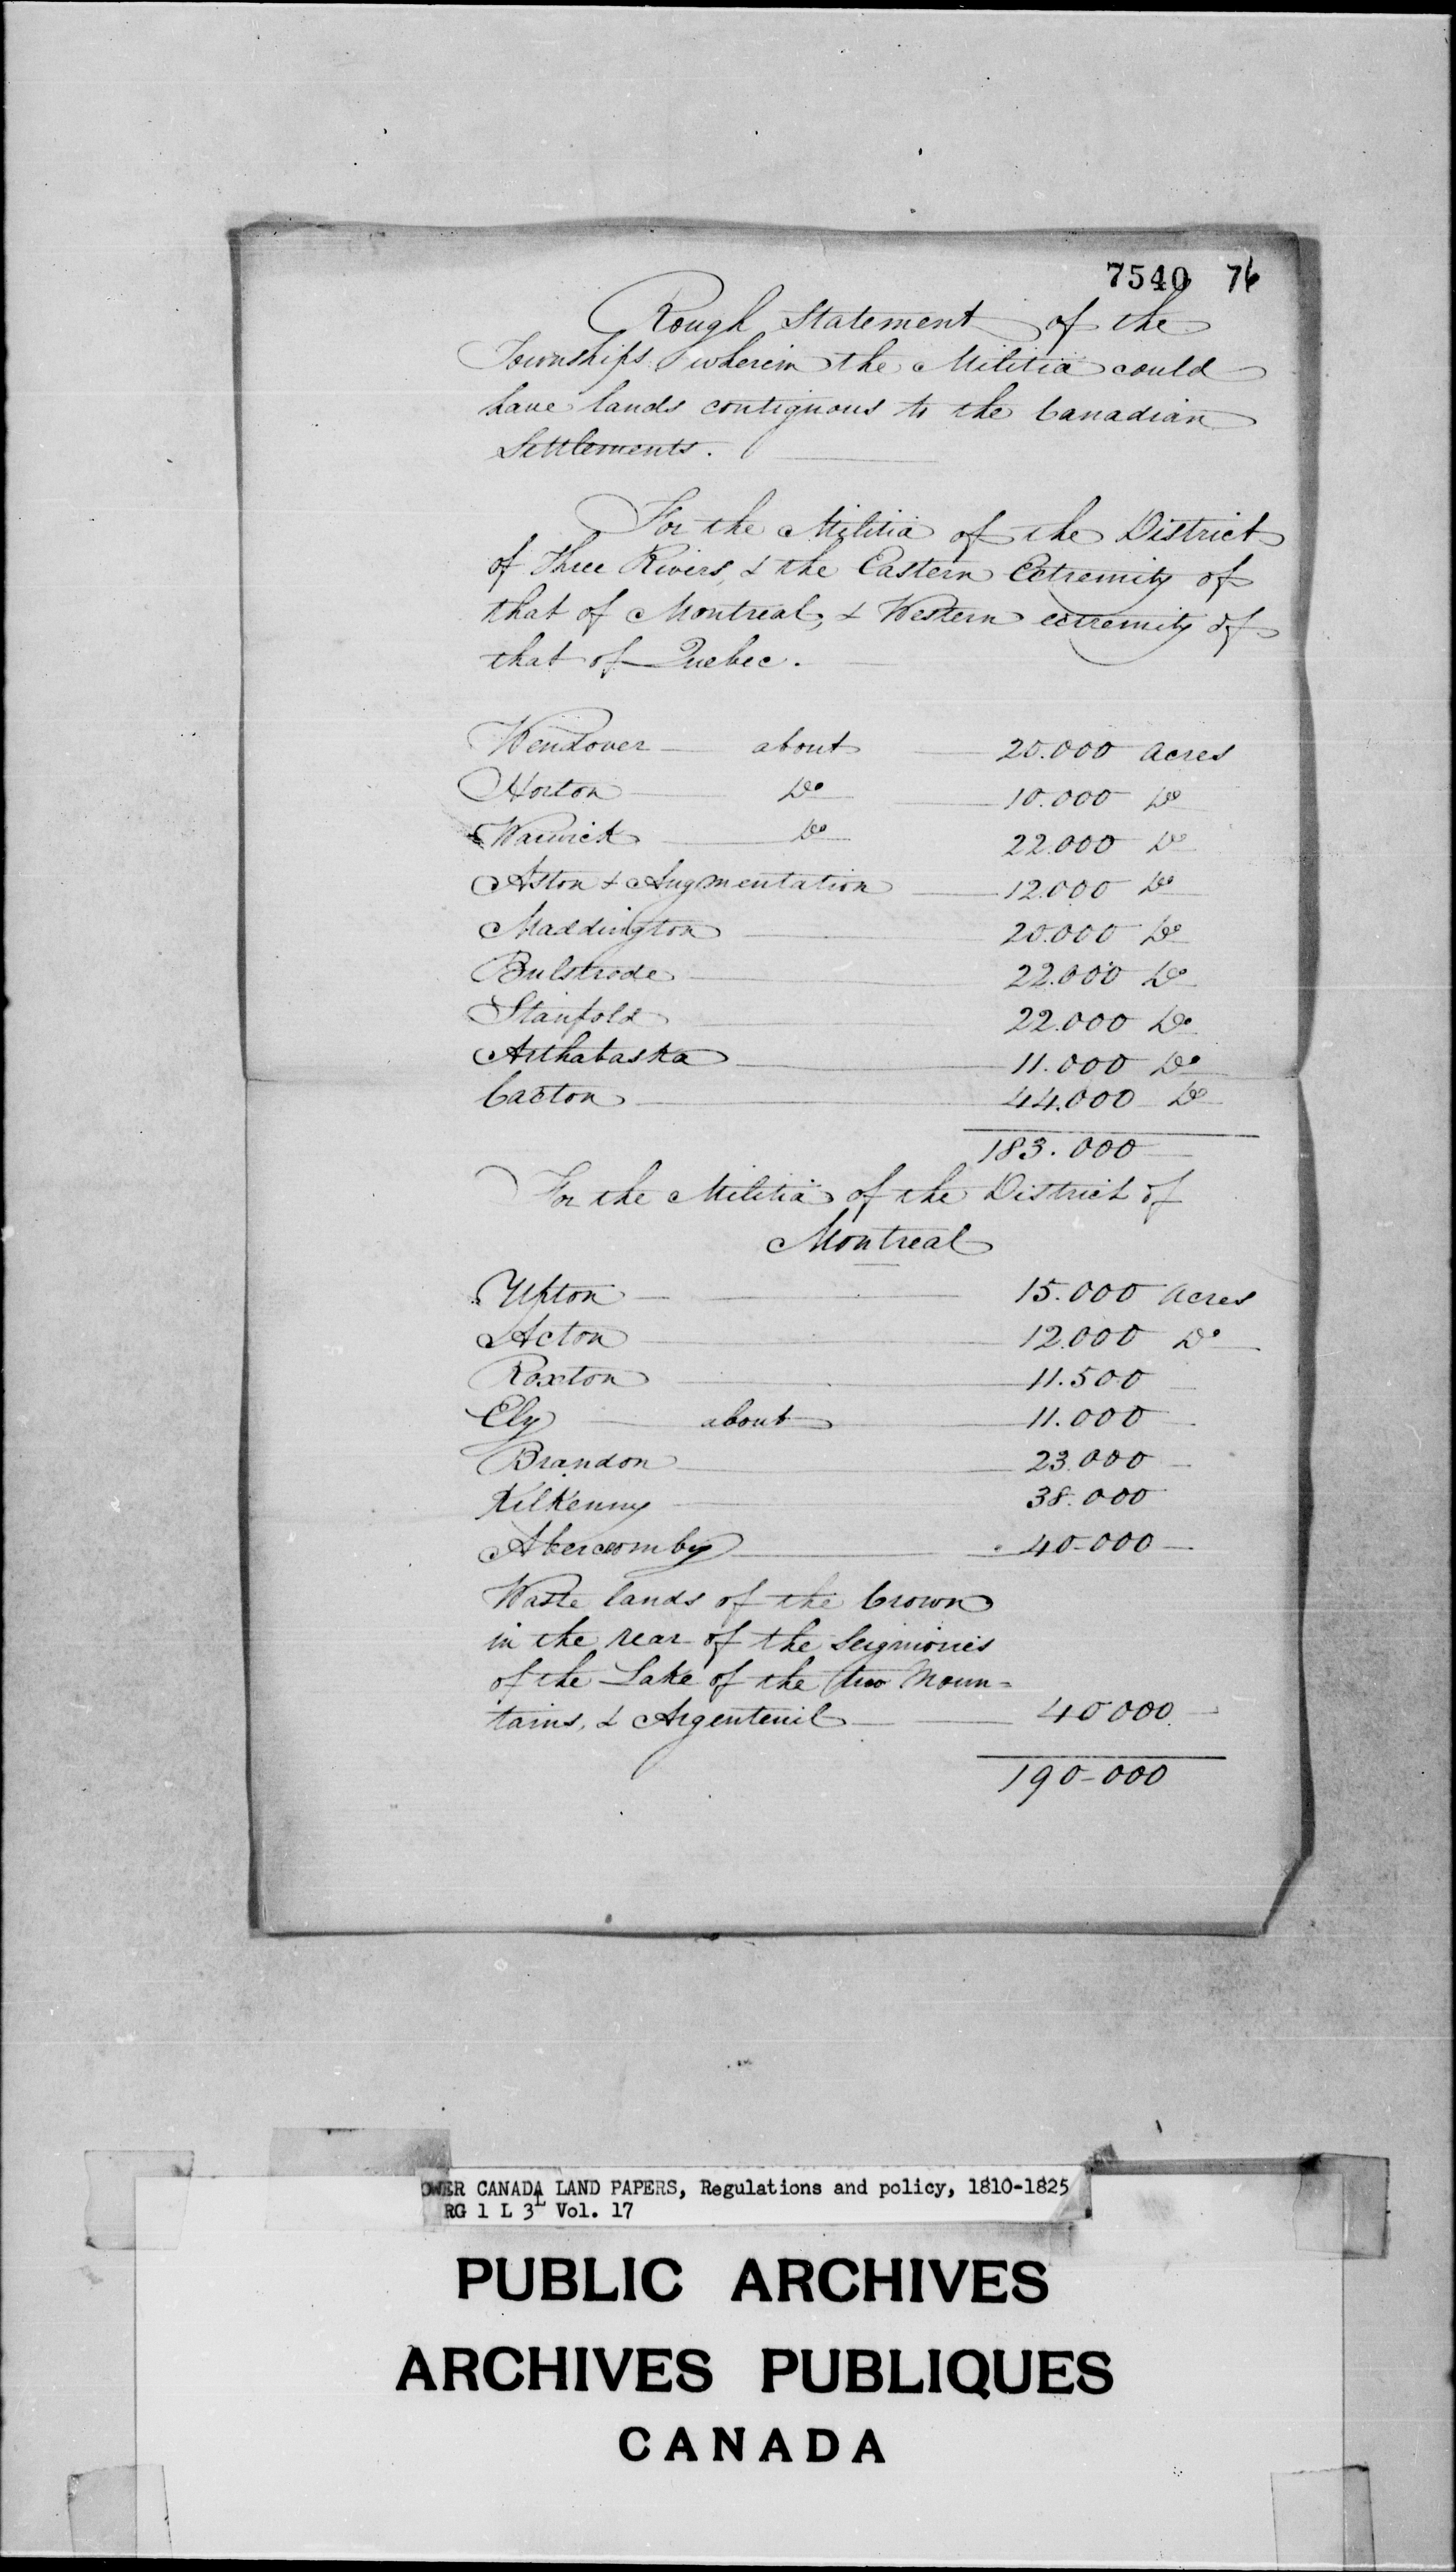 7540 76
Rough Statement of the
Townships wherein the Militia could
have lands contiguous to the Canadian
Settlements.
For the Militia of the District
of Three Rivers, & the Eastern Extremity of
that of Montreal, & Western extremity of
that of Quebec.
Wendover about 20.000 acres
Horton Do 10.000 Do
Warwick Do 22.000 Do
Aston & Augmentation 12.000 Do
Maddington 20.000 Do
Bulstrode 22.000 Do
Stanfold 22.000 Do
Arthabaska 11.000 Do
Caxton 44.000 Do
183.000
For the Militia of the District of
Montreal
Upton 15.000 acres
Acton 12.000 Do
Roxton 11.500
Ely about 11.000
Brandon 23.000
Kilkenny 38.000
Abercromby 40-000
Waste lands of the Crown
in the rear of the Seigniories
of the Lake of the two Moun=
tains, & Argenteuil 40000
190-000
OWER CANADA LAND PAPERS, Regulations and policy, 1810-1825
RG 1 L 3L Vol. 17
PUBLIC ARCHIVES
ARCHIVES PUBLIQUES
CANADA